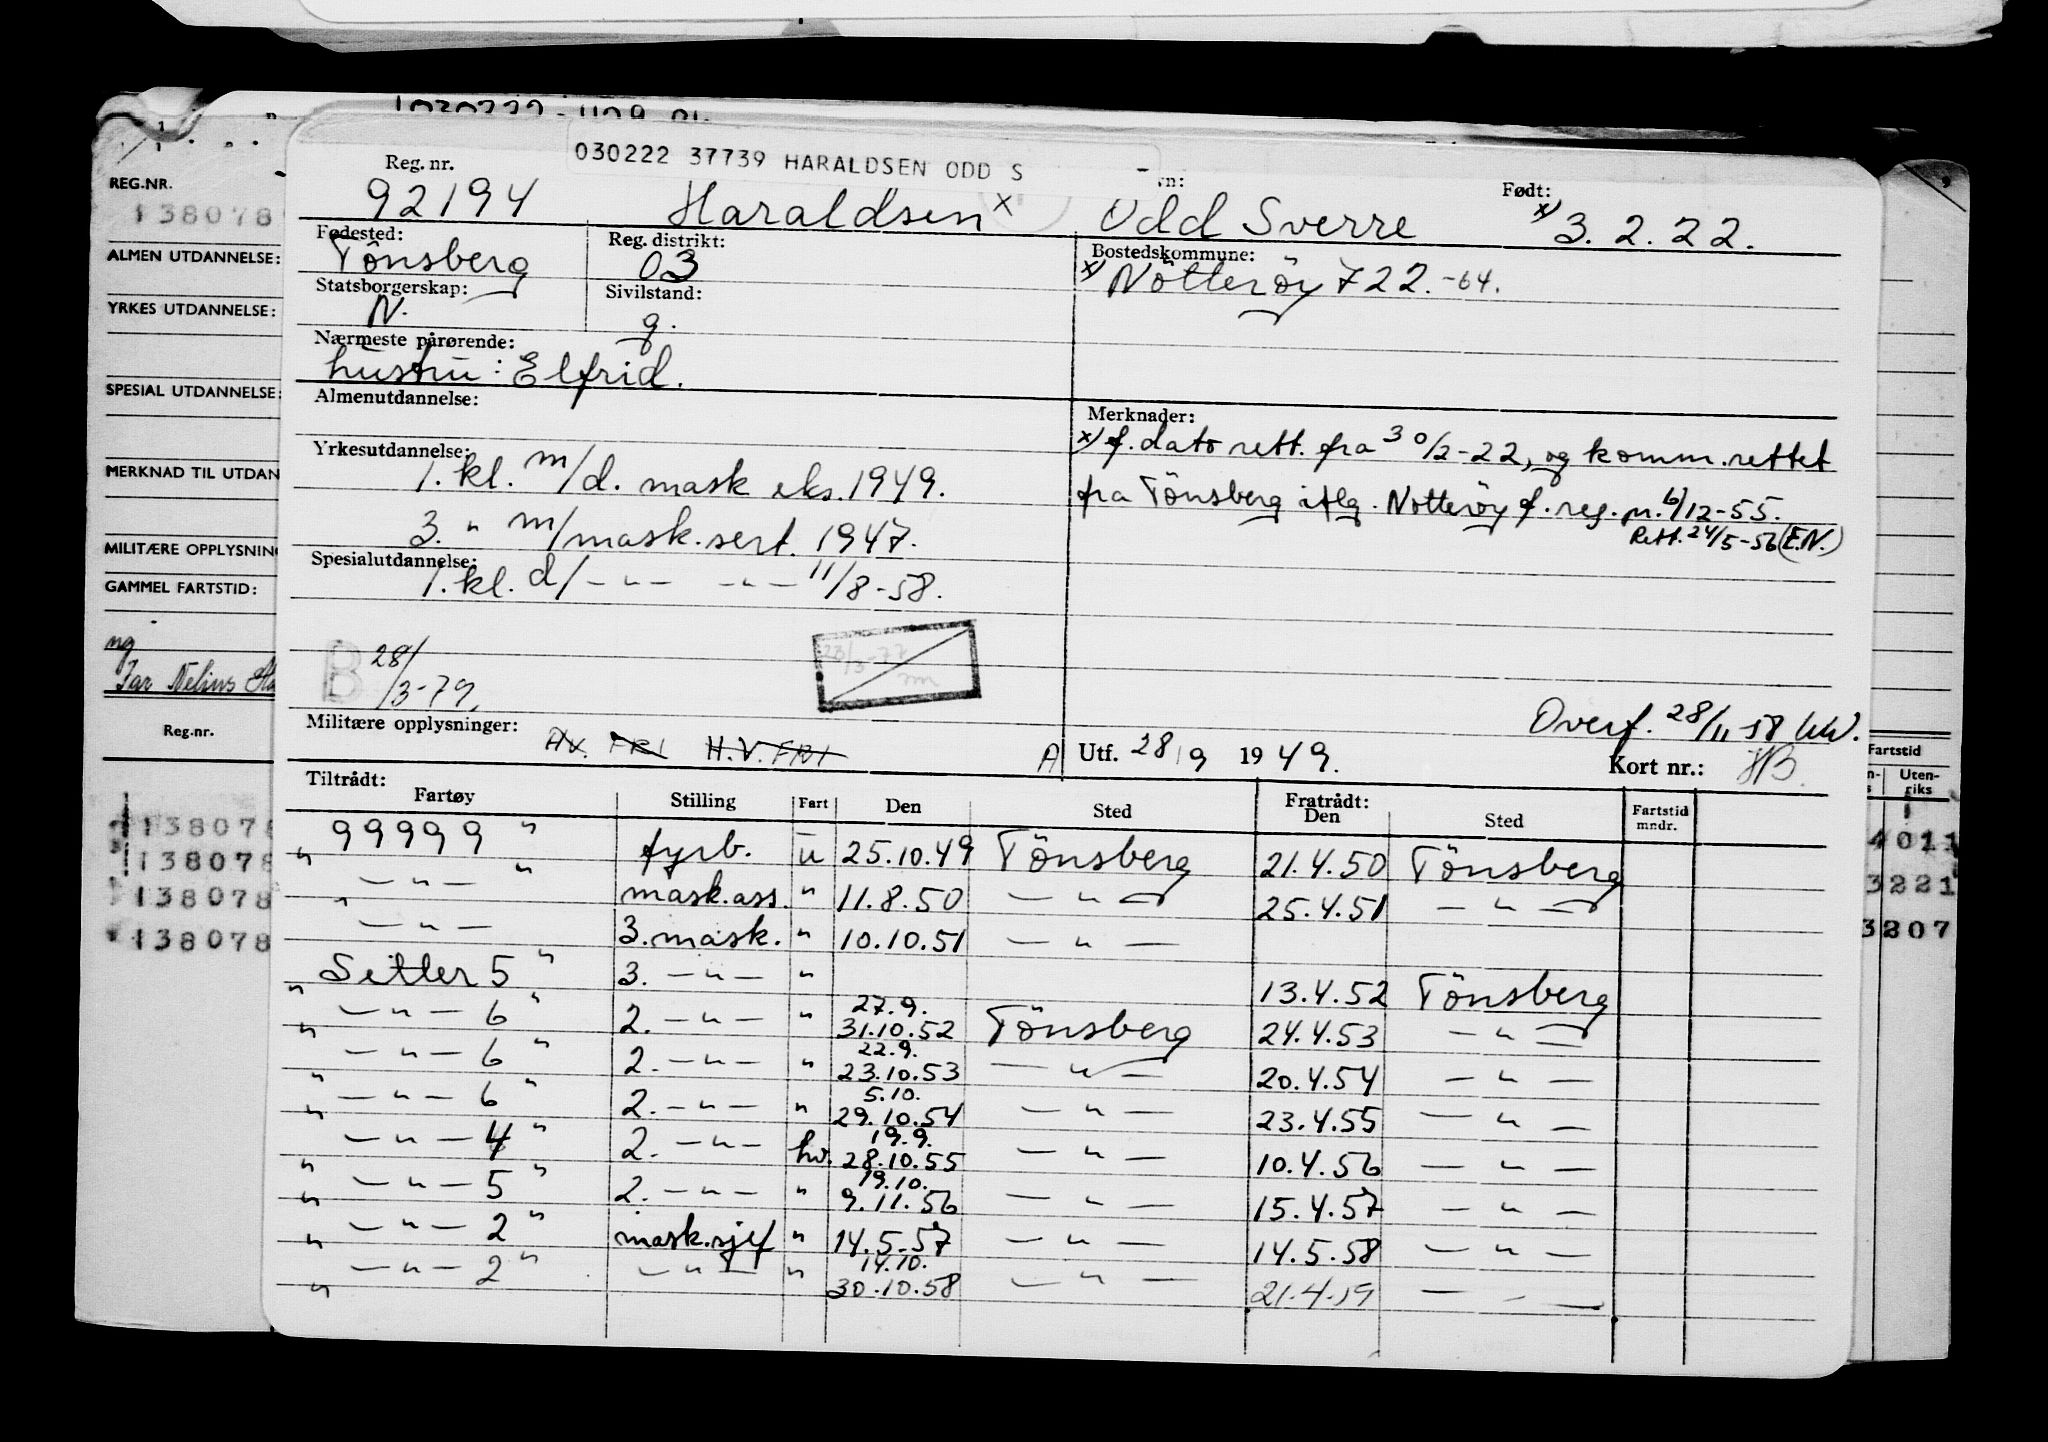 030222 37739 HARALDSEN ODD S
Reg. nr. Født:
92194 Haraldsen x Odd Sverre x) 3.2.22.
Fødested: Reg. distrikt: Bostedskommune:
Tönsberg 03 x) Nötteröy 722.-64.
Statsborgerskap: Sivilstand:
N. g.
Nærmeste pårørende:
hustru: Elfrid.
Almenutdannelse: Merknader:
x) f. dato rett. fra 30/2-22, og komm. rettet
fra Tönsberg iflg. Nötteröy f. reg. pr. 6/12-55.
Rett. 24/5-56 (E.N.)
Yrkesutdannelse:
1. kl. m/d. mask eks. 1949.
3. " m/mask.sert. 1947.
Spesialutdannelse:
1. kl. d/ — " — — " — 11/8-58.
B 28/3-79.
23/3-77
Overf. 28/11 58
Militære opplysninger: H.V. FRI H.V. FRI
A Utf. 28/9 1949. Kort nr.:
Tiltrådt: Fratrådt:
Fartøy Stilling Fart Den Sted Den Sted Fartstid mndr.
99999 " fyrb. u 25.10.49 Tönsberg 21.4.50 Tönsberg
" — " — " mask.ass. " 11.8.50 — " — 25.4.51 — " —
— " — " 3. mask. " 10.10.51 — " —
Setter 5 " 3. — " — " 13.4.52 Tönsberg
" — " — 6 " 2. — " — " 27.9. 31.10.52 Tönsberg 24.4.53 — " —
" — " — 6 " 2. — " — " 22.9. 23.10.53 — " — 20.4.54 — " —
" — " — 6 " 2. — " — " 5.10. 29.10.54 — " — 23.4.55 — " —
" — " — 4 " 2. — " — hv. 19.9. 28.10.55 — " — 10.4.56 — " —
" — " — 5 " 2. — " — " 19.10. 9.11.56 — " — 15.4.57 — " —
" — " — 2 " mask.sjef " 14.5.57 — " — 14.5.58 — " —
" — " — 2 " — " — " 14.10. 30.10.58 — " — 21.4.59 — " —
REG.NR.
138078
ALMEN UTDANNELSE:
YRKES UTDANNELSE:
SPESIAL UTDANNELSE:
MERKNAD TIL UTDAN
MILITÆRE OPPLYSNIN
GAMMEL FARTSTID:
ng
Far Nelius
Reg.nr.
138078
138078
138078
138078
Fartstid
Uten-
riks
4011
3221
3207